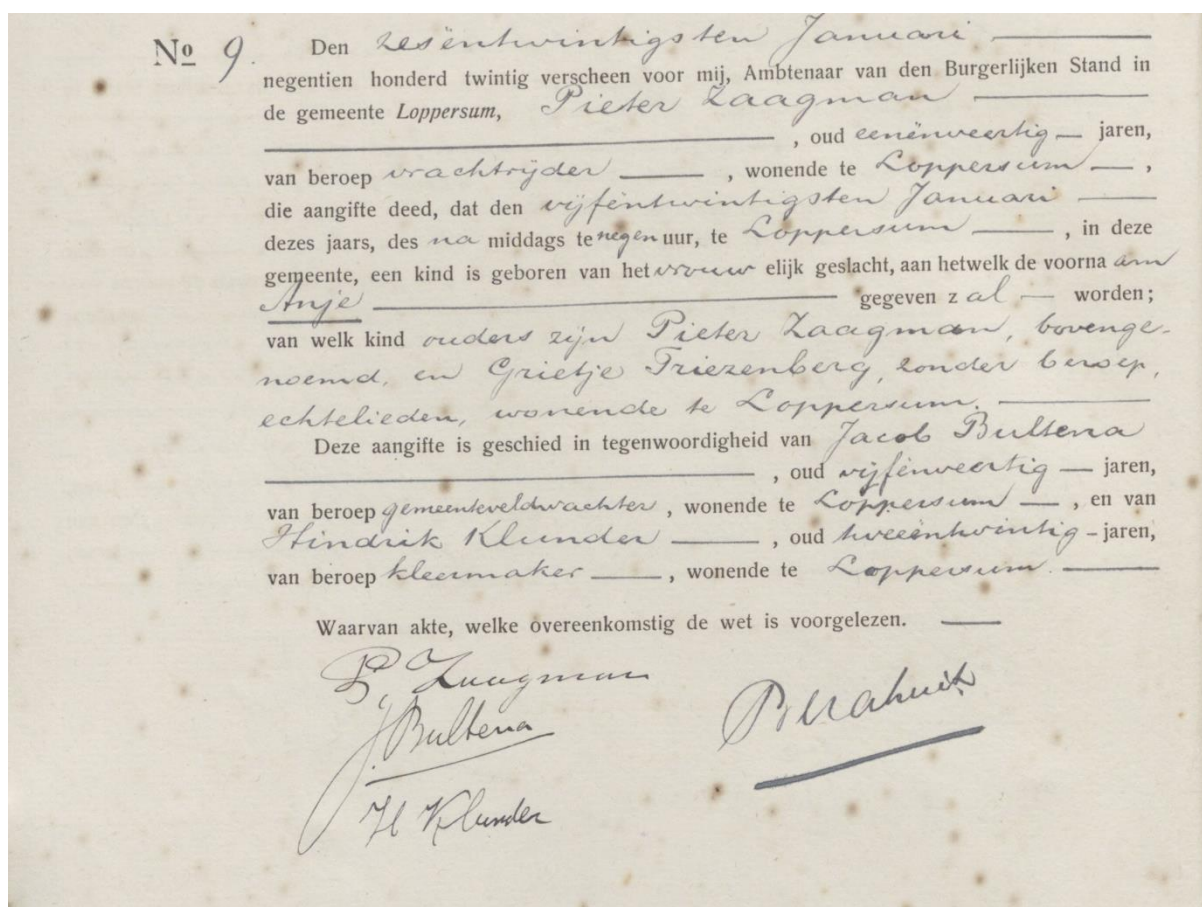 No 9. Den zesëntwintigsten Januari
negentien honderd twintig verscheen voor mij, Ambtenaar van den Burgerlijken Stand in
de gemeente Loppersum, Pieter Zaagman
, oud eenënveertig jaren,
van beroep vrachtrijder , wonende te Loppersum ,
die aangifte deed, dat den vijfëntwintigsten Januari
dezes jaars, des na middags te negen uur, te Loppersum , in deze
gemeente, een kind is geboren van het vrouw elijk geslacht, aan hetwelk de voorna am
Anje gegeven z al worden;
van welk kind ouders zijn Pieter Zaagman, bovenge-
noemd, en Grietje Triezenberg, zonder beroep,
echtelieden, wonende te Loppersum.
Deze aangifte is geschied in tegenwoordigheid van Jacob Bultena
, oud vijfënveertig jaren,
van beroep gemeenteveldwachter , wonende te Loppersum , en van
Hindrik Klunder , oud tweeëntwintig jaren,
van beroep kleermaker , wonende te Loppersum.
Waarvan akte, welke overeenkomstig de wet is voorgelezen.
P. Zaagman
J. Bultena
H Klunder